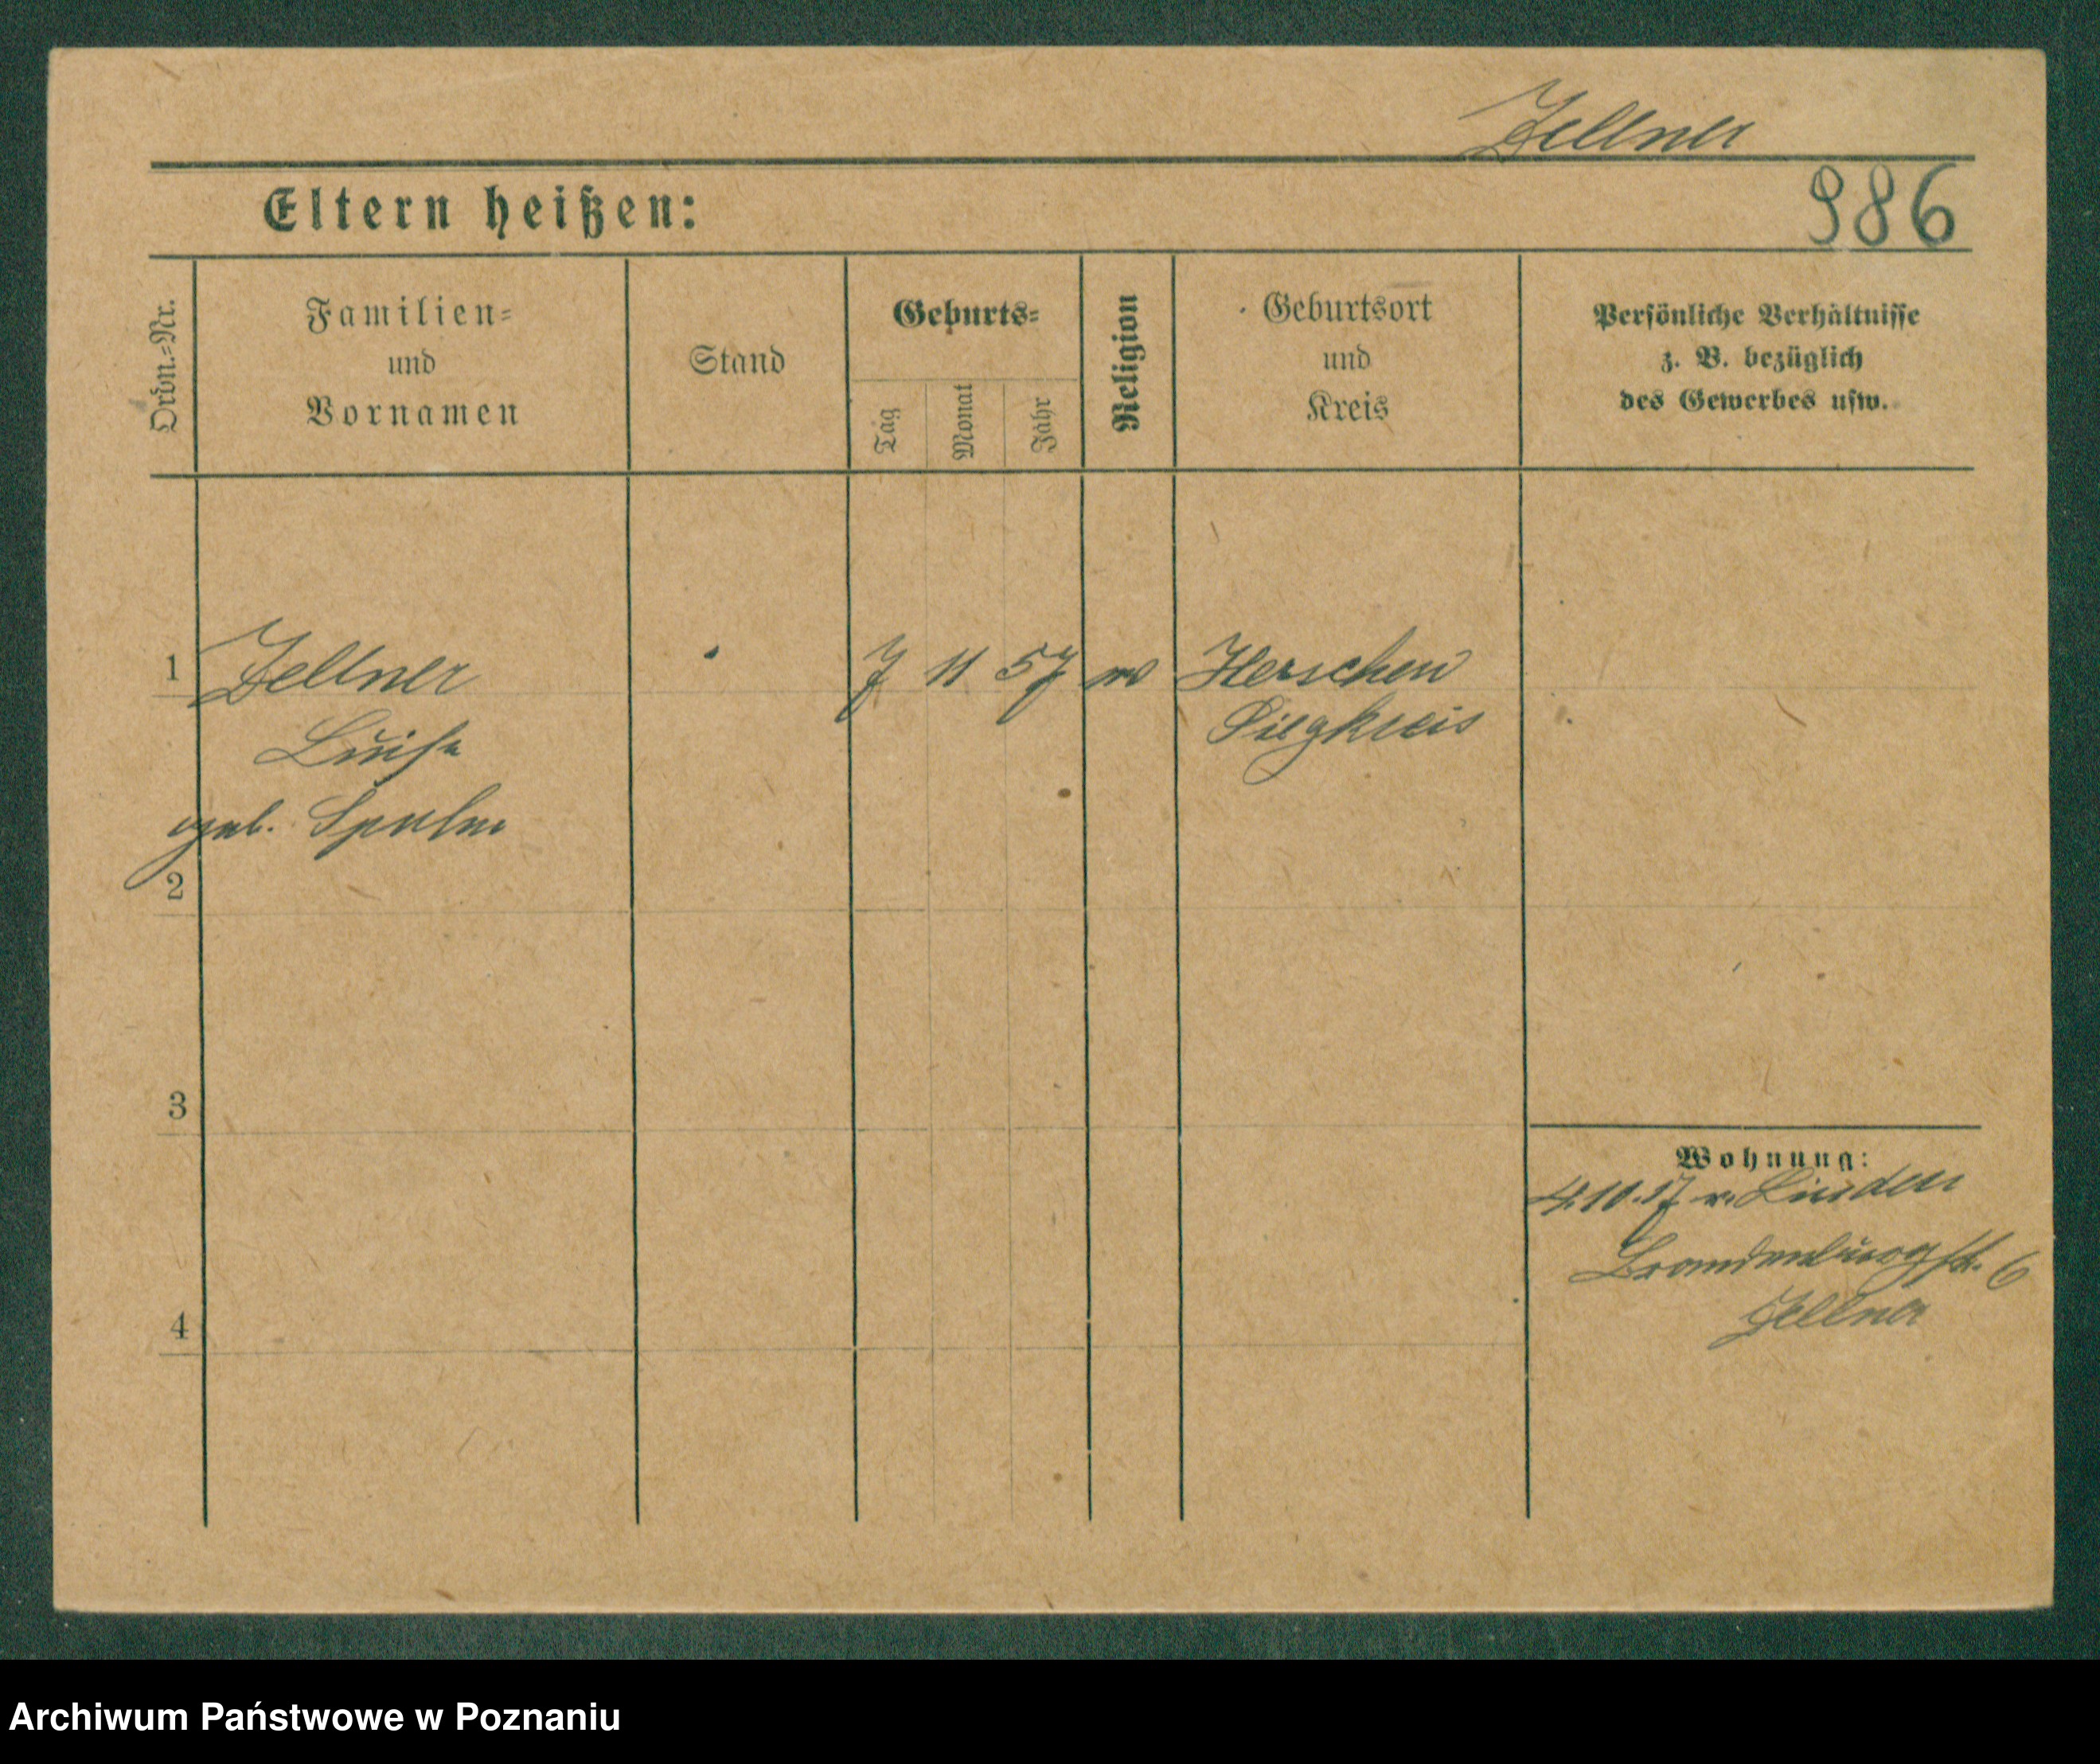 Zellner
Eltern heißen:
986
Ordn.=Nr.
Familien=
und
Vornamen
Stand
Geburts=
Tag
Monat
Jahr
Religion
Geburtsort
und
Kreis
Persönliche Verhältnisse
z. B. bezüglich
des Gewerbes usw.
1 Zellner 7 11 57 Herschen
Luise Siegkreis
geb.
2
3
4
Wohnung:
4.10.17 v. Linden
Brandenburgstr. 6
Zellner
Archiwum Państwowe w Poznaniu